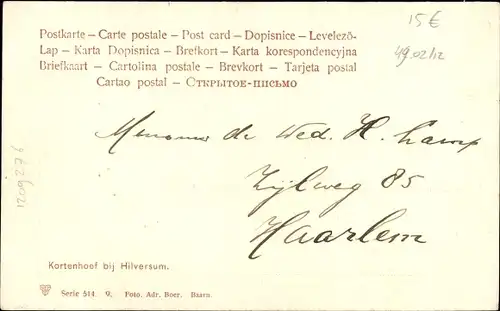 Postkarte – Carte postale – Post card – Dopisnice – Levelező-
Lap – Karta Dopisnica – Brefkort – Karta korespondencyjna
Briefkaart – Cartolina postale – Brevkort – Tarjeta postal
Cartao postal – Открытое-письмо
15€
49.02/12
1209276
de Wed. H. Kamp
Zijlweg 85
Haarlem
Kortenhoef bij Hilversum.
Serie 514 9. Foto. Adr. Boer. Baarn.